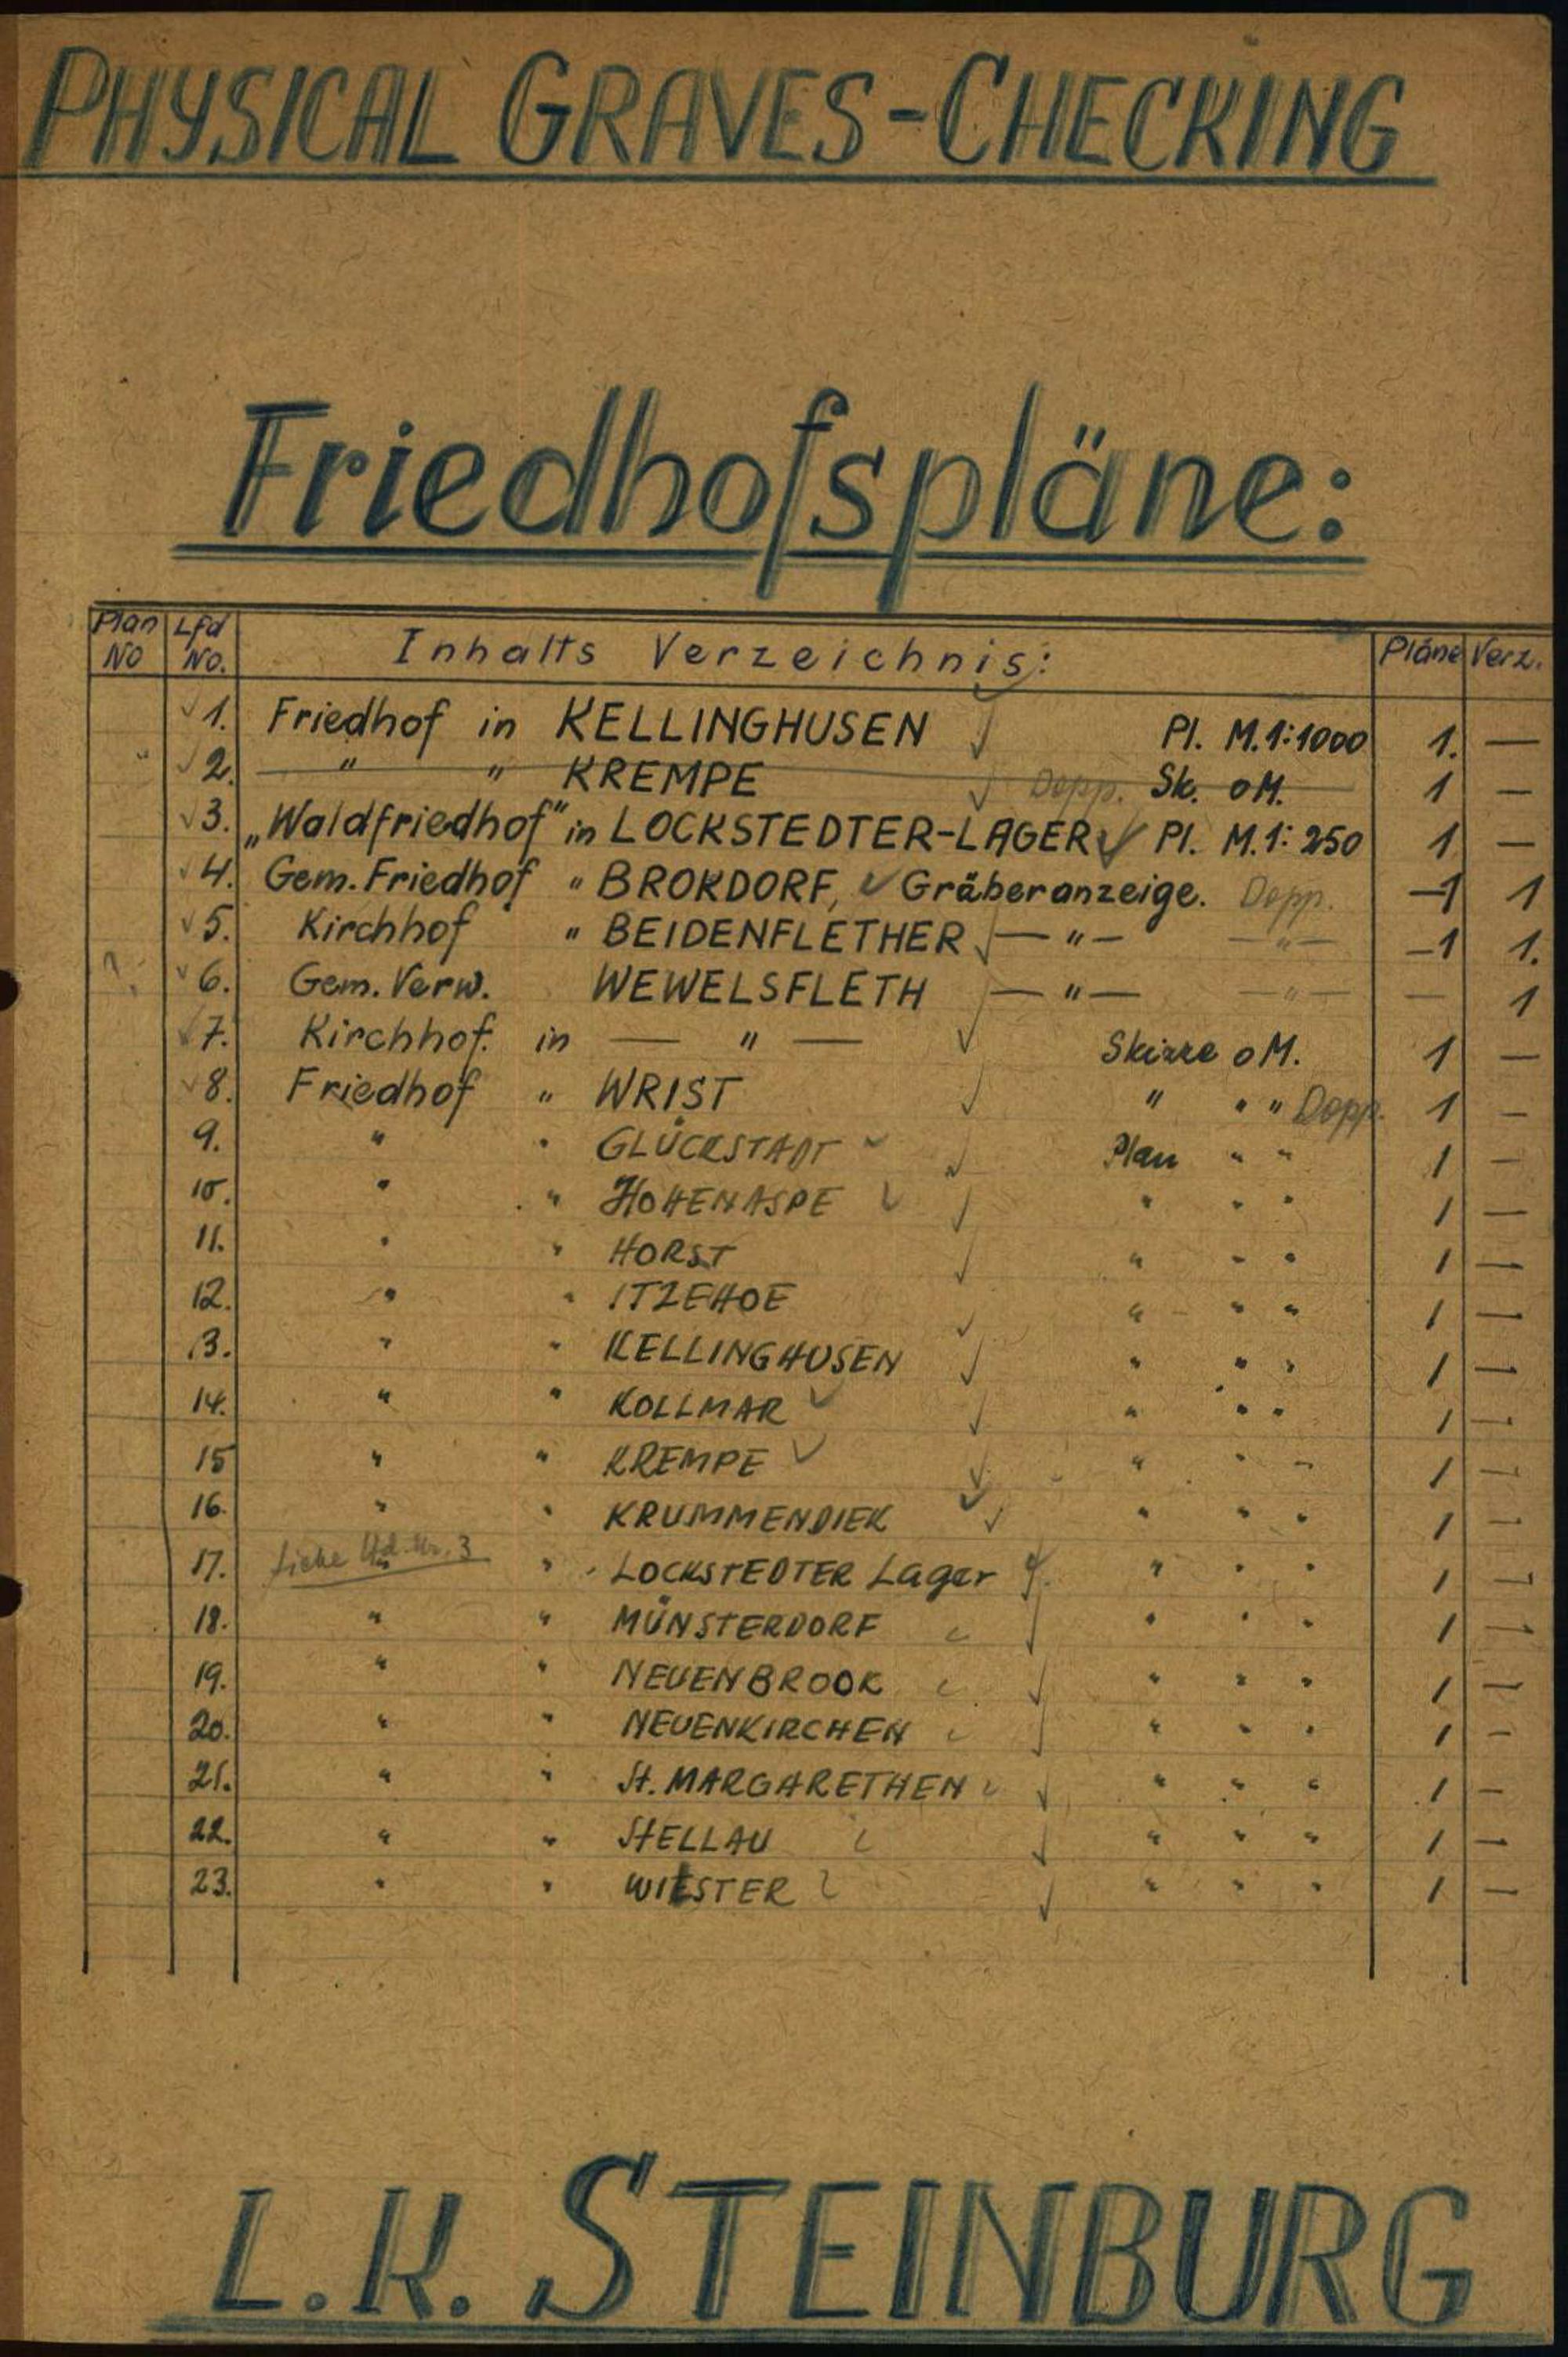 PHYSICAL GRAVES-CHECKING
Friedhofspläne:
Plan No Lfd No. Inhalts Verzeichnis: Pläne Verz.
1. Friedhof in KELLINGHUSEN Pl. M.1:1000 1. —
2. " " KREMPE Dopp. Sk. oM. 1 —
3. „Waldfriedhof" in LOCKSTEDTER-LAGER Pl. M.1:250 1 —
4. Gem. Friedhof " BROKDORF, Gräberanzeige. Dopp. 1 1
5. Kirchhof " BEIDENFLETHER — " — — " — 1 1.
?. 6. Gem. Verw. WEWELSFLETH — " — — " — — 1
7. Kirchhof. in — " — Skizze oM. 1 —
8. Friedhof " WRIST " " " Dopp. 1 —
9. " " GLÜCKSTADT Plan " " 1 —
10. " " HOHENASPE " " " 1 —
11. " " HORST " " " 1 —
12. " " ITZEHOE " " " 1 —
13. " " KELLINGHUSEN " " " 1 —
14. " " KOLLMAR " " " 1 —
15 " " KREMPE " " " 1 —
16. " " KRUMMENDIEK " " " 1 —
17. siehe lfd. Nr. 3 " " LOCKSTEDTER Lager " " " 1 —
18. " " MÜNSTERDORF " " " 1 —
19. " " NEUENBROOK " " " 1 —
20. " " NEUENKIRCHEN " " " 1 —
21. " " St. MARGARETHEN " " " 1 —
22. " " STELLAU " " " 1 —
23. " " WILSTER " " " 1 —
L.K. STEINBURG